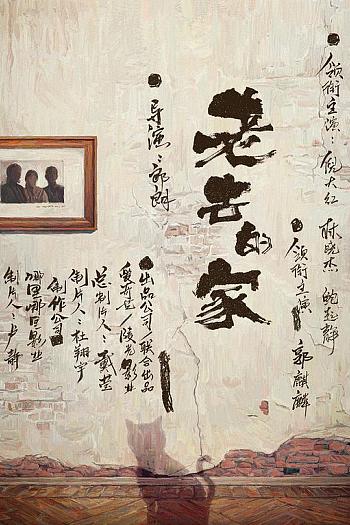 领衔主演：倪大红 陈晓杰 鲍玉静
领衔主演 郭麒麟
老去的家
导演：郭朗
出品公司 联合出品
爱奇艺 陵光影业
总制片人：戴莹
制片人：杜翔宇
制作公司
哪里哪里影业
制片人：卢静